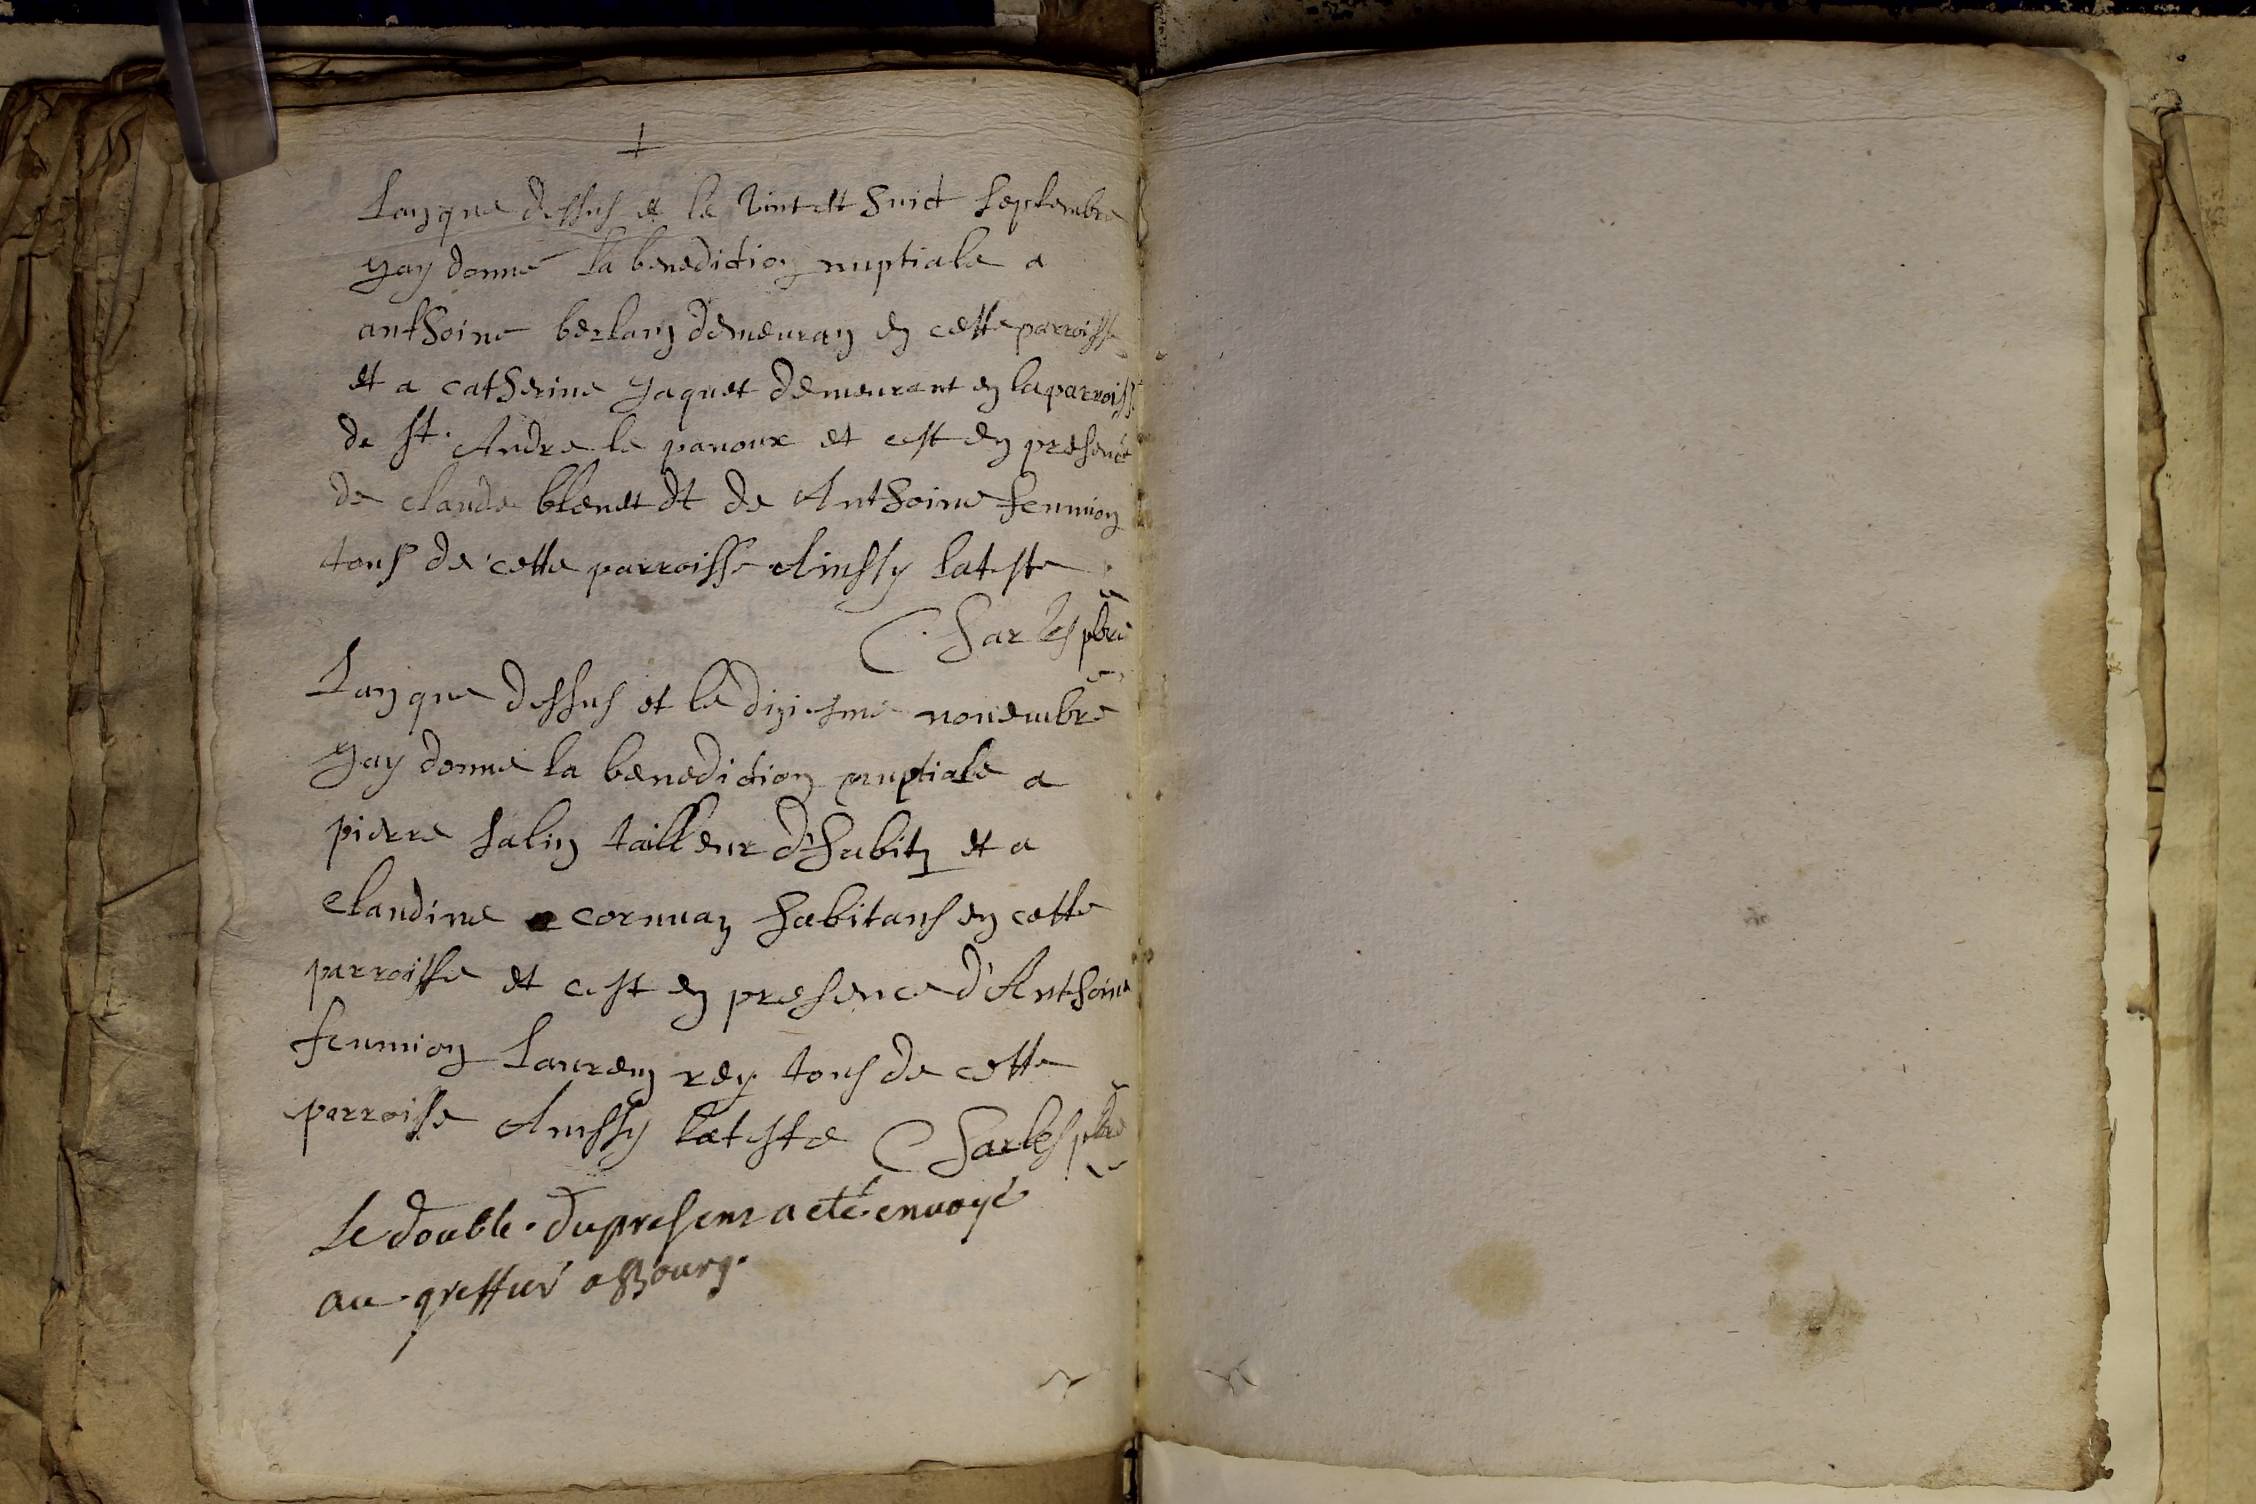 +
Lan que dessus et le vint et huict septembre
yay donné la benediction nuptiale a
anthoine berlan demeuran en cette parroisse
et a catherine yaquet demeurant en la parroisse
de st. Andre le panoux et cest en presence
de claude blenet et de Anthoine feunion
tous de cette parroisse Ainssy lateste
Charles pbre
Lan que dessus et le diziesme nouembre
yay donne la benediction nuptiale a
pierre salin tailleur d'habitz et a
claudine cornuan habitans en cette
parroisse et cest en presence d'Anthoine
feunion Lauren rey tous de cette
parroisse Ainssy lateste Charles pbre
Le double. du present a eté envoyé
au greffier a Bourg.